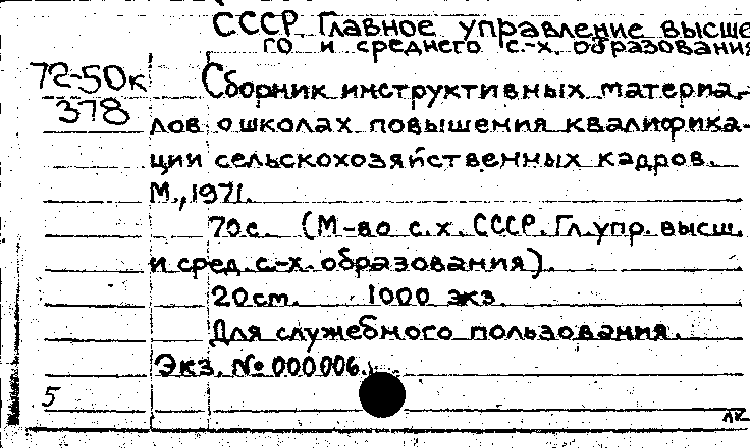 СССР. Главное управление высше
го и среднего с.-х. образования
72-50к Сборник инструктивных материа-
378 лов о школах повышения квалифика-
ции сельскохозяйственных кадров.
М., 1971.
70с. (М-во с.х. СССР. Гл.упр. высш.
и сред. с.-х. образования).
20см. 1000 экз.
Для служебного пользования.
Экз. № 000006.
5